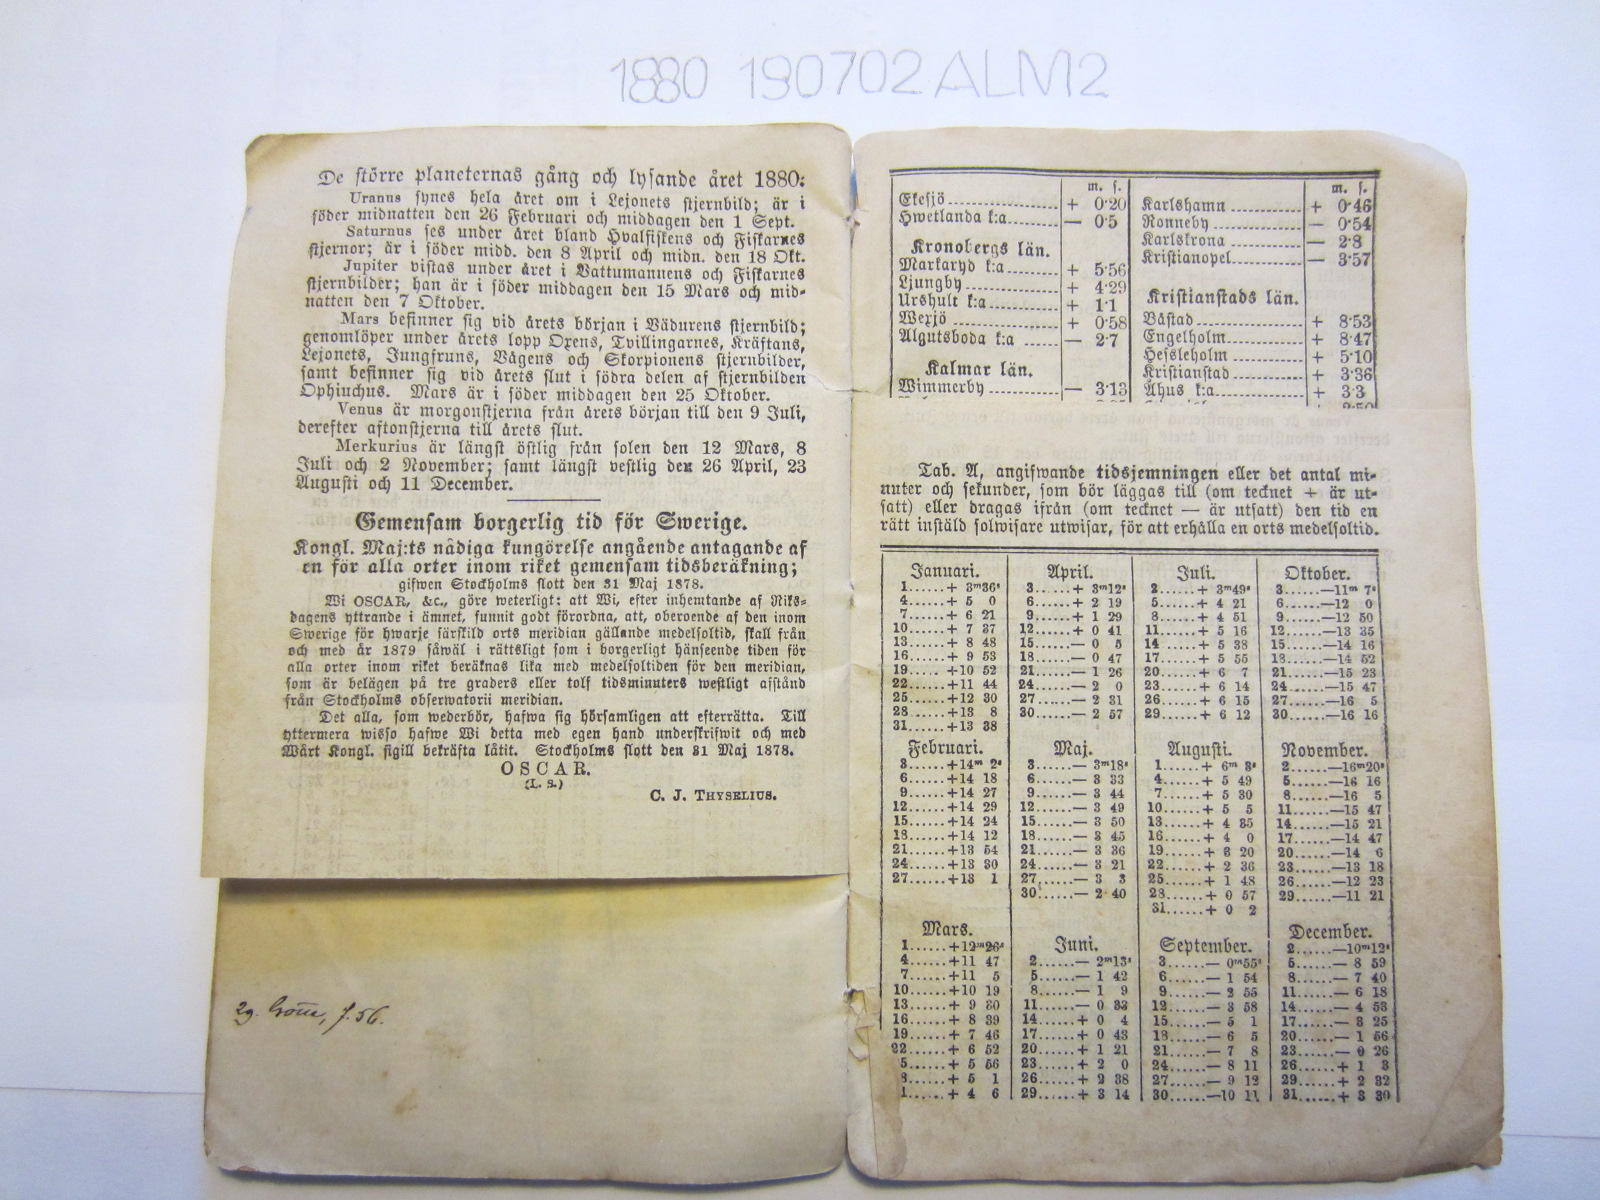 1880 190702ALM2
De större planeternas gång och lysande året 1880:
Uranus synes hela året om i Lejonets stjernbild; är i
söder midnatten den 26 Februari och middagen den 1 Sept.
Saturnus ses under året bland Hvalfiskens och Fiskarnes
stjernor; är i söder midd. den 8 April och midn. den 18 Okt.
Jupiter vistas under året i Vattumannens och Fiskarnes
stjernbilder; han är i söder middagen den 15 Mars och mid-
natten den 7 Oktober.
Mars befinner sig vid årets början i Vädurens stjernbild;
genomlöper under årets lopp Oxens, Tvillingarnes, Kräftans,
Lejonets, Jungfruns, Vågens och Skorpionens stjernbilder,
samt befinner sig vid årets slut i södra delen af stjernbilden
Ophiuchus. Mars är i söder middagen den 25 Oktober.
Venus är morgonstjerna från årets början till den 9 Juli,
derefter aftonstjerna till årets slut.
Merkurius är längst östlig från solen den 12 Mars, 8
Juli och 2 November; samt längst vestlig den 26 April, 23
Augusti och 11 December.
Gemensam borgerlig tid för Swerige.
Kongl. Maj:ts nådiga kungörelse angående antagande af
en för alla orter inom riket gemensam tidsberäkning;
gifwen Stockholms slott den 31 Maj 1878.
Wi OSCAR, &c., göre weterligt: att Wi, efter inhemtande af Riks-
dagens yttrande i ämnet, funnit godt förordna, att, oberoende af den inom
Swerige för hwarje särskild orts meridian gällande medelsoltid, skall från
och med år 1879 såwäl i rättsligt som i borgerligt hänseende tiden för
alla orter inom riket beräknas lika med medelsoltiden för den meridian,
som är belägen på tre graders eller tolf tidsminuters westligt afstånd
från Stockholms observatorii meridian.
Det alla, som wederbör, hafwa sig hörsamligen att efterrätta. Till
yttermera wisso hafwe Wi detta med egen hand underskrifwit och med
Wårt Kongl. sigill bekräfta låtit. Stockholms slott den 31 Maj 1878.
OSCAR.
(L. S.)
C. J. THYSELIUS.
m. s.
Eksjö + 0·20
Hwetlanda k:a — 0·5
Kronobergs län.
Markaryd k:a + 5·56
Ljungby + 4·29
Urshult k:a + 1·1
Wexjö + 0·58
Algutsboda k:a — 2·7
Kalmar län.
Wimmerby — 3·13
m. s.
Karlshamn + 0·46
Ronneby — 0·54
Karlskrona — 2·8
Kristianopel — 3·57
Kristianstads län.
Båstad + 8·53
Engelholm + 8·47
Hessleholm + 5·10
Kristianstad + 3·36
Åhus k:a + 3·3
Tab. A, angifwande tidsjemningen eller det antal mi-
nuter och sekunder, som bör läggas till (om tecknet + är ut-
satt) eller dragas ifrån (om tecknet — är utsatt) den tid en
rätt inställd solwisare utwisar, för att erhålla en orts medelsoltid.
Januari.
1......+ 3m36s
4......+ 5 0
7......+ 6 21
10......+ 7 37
13......+ 8 48
16......+ 9 53
19......+10 52
22......+11 44
25......+12 30
28......+13 8
31......+13 38
Februari.
3......+14m 2s
6......+14 18
9......+14 27
12......+14 29
15......+14 24
18......+14 12
21......+13 54
24......+13 30
27......+13 1
Mars.
1......+12m26s
4......+11 47
7......+11 5
10......+10 19
13......+ 9 30
16......+ 8 39
19......+ 7 46
22......+ 6 52
5......+ 5 56
......+ 5 1
1......+ 4 6
April.
3......+ 3m12s
6......+ 2 19
9......+ 1 29
12......+ 0 41
15......— 0 5
18......— 0 47
21......— 1 26
24......— 2 0
27......— 2 31
30......— 2 57
Maj.
3......— 3m18s
6......— 3 33
9......— 3 44
12......— 3 49
15......— 3 50
18......— 3 45
21......— 3 36
24......— 3 21
27......— 3 3
30......— 2 40
Juni.
2......— 2m13s
5......— 1 42
8......— 1 9
11......— 0 33
14......+ 0 4
17......+ 0 43
20......+ 1 21
23......+ 2 0
26......+ 2 38
29......+ 3 14
Juli.
2......+ 3m49s
5......+ 4 21
8......+ 4 51
11......+ 5 16
14......+ 5 38
17......+ 5 55
20......+ 6 7
23......+ 6 14
26......+ 6 15
29......+ 6 12
Augusti.
1......+ 6m 3s
4......+ 5 49
7......+ 5 30
10......+ 5 5
13......+ 4 35
16......+ 4 0
19......+ 3 20
22......+ 2 36
25......+ 1 48
28......+ 0 57
31......+ 0 2
September.
3......— 0m55s
6......— 1 54
9......— 2 55
12......— 3 58
15......— 5 1
18......— 6 5
21......— 7 8
24......— 8 11
27......— 9 12
30......—10 11
Oktober.
3......—11m 7s
6......—12 0
9......—12 50
12......—13 35
15......—14 16
18......—14 52
21......—15 23
24......—15 47
27......—16 5
30......—16 16
November.
2......—16m20s
5......—16 16
8......—16 5
11......—15 47
14......—15 21
17......—14 47
20......—14 6
23......—13 18
26......—12 23
29......—11 21
December.
2......—10m12s
5......— 8 59
8......— 7 40
11......— 6 18
14......— 4 53
17......— 3 25
20......— 1 56
23......— 0 26
26......+ 1 3
29......+ 2 32
31......+ 3 30